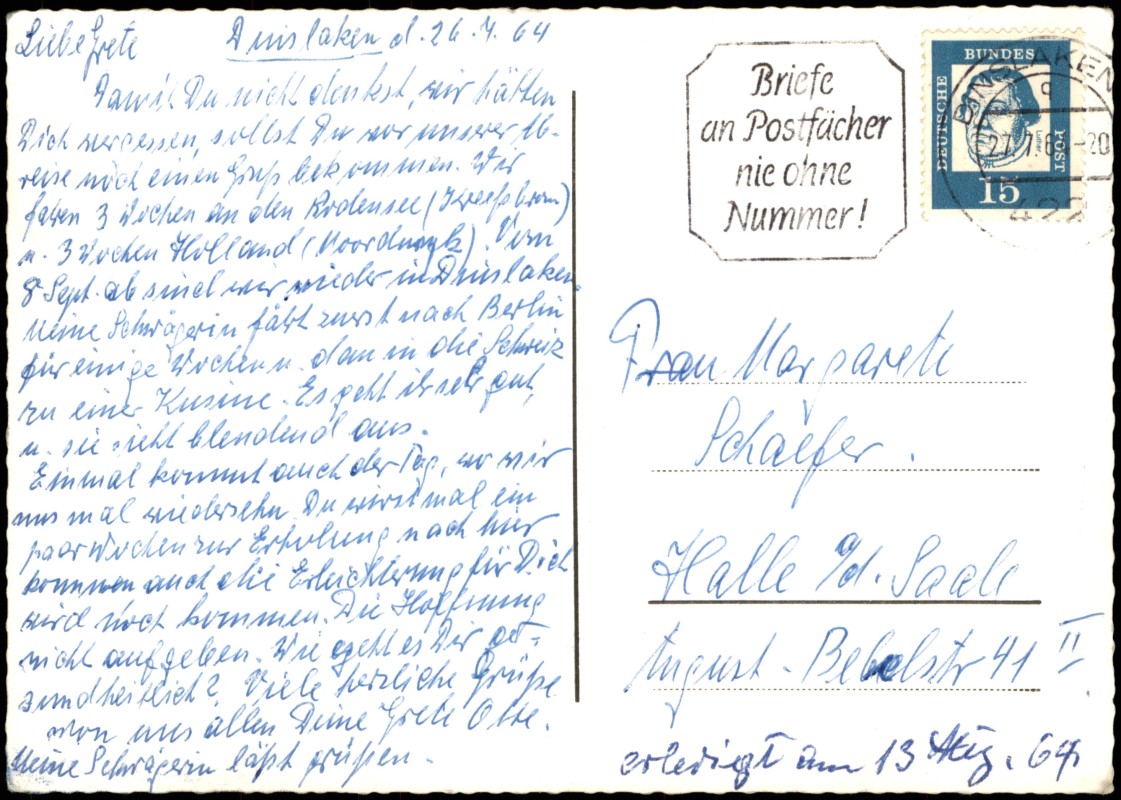 Liebe Grete Dinslaken d. 26.7.64
Damit Du nicht denkst, wir hätten
Dich vergessen, sollst Du vor unserer Ab-
reise noch einen Gruß bekommen. Wir
fahren 3 Wochen an den Bodensee (Kreßbronn)
u. 3 Wochen Holland (Noordwyk). Vom
8 Sept. ab sind wir wieder in Dinslaken.
Meine Schwägerin fährt zuerst nach Berlin
für einige Wochen u. dann in die Schweiz
zu einer Kusine. Es geht ihr sehr gut,
u. sie sieht blendend aus.
Einmal kommt auch der Tag, wo wir
uns mal wiedersehn. Du wirst mal ein
paar Wochen zur Erholung nach hier
kommen auch die Erleichterung für Dich
wird noch kommen. Die Hoffnung
nicht aufgeben. Wie geht es Dir ge-
sundheitlich? Viele herzliche Grüße
von uns allen Deine Grete Otte.
Meine Schwägerin läßt grüßen.
Briefe
an Postfächer
nie ohne
Nummer!
DEUTSCHE
BUNDES
POST
Luther
15
DINSLAKEN
c
27.7.64-20
422
Frau Margarete
Schaefer.
Halle a/d. Saale
August-Bebelstr 41 II
erledigt am 13 Aug. 64